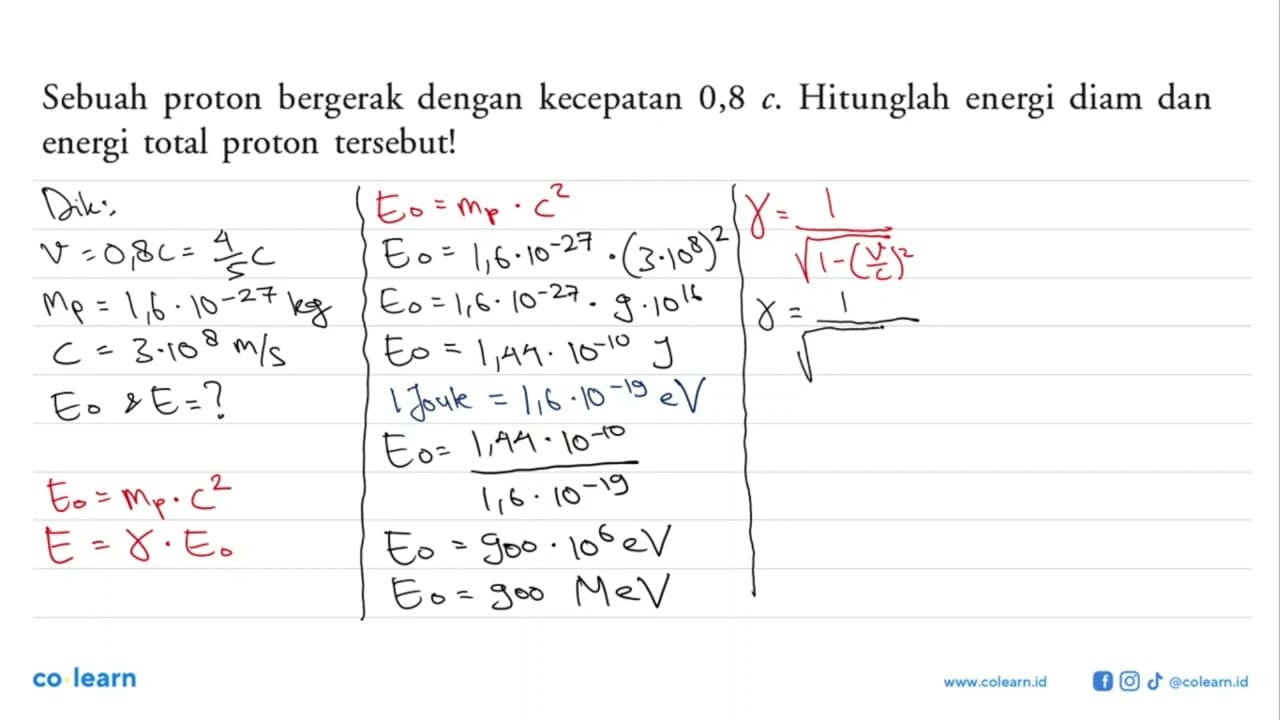 Sebuah proton bergerak dengan kecepatan 0,8 c. Hitunglah energi diam dan
energi total proton tersebut!
Dik:
v = 0,8c = 4/5 c
mp = 1,6 · 10^-27 kg
c = 3·10^8 m/s
E0 & E = ?
E0 = mp · c^2
E = γ · E0
E0 = mp · c^2
E0 = 1,6·10^-27 · (3·10^8)^2
E0 = 1,6 · 10^-27 · 9 · 10^16
E0 = 1,44 · 10^-10 J
1 Joule = 1,6 · 10^-19 eV
E0 = 1,44 · 10^-10 / 1,6 · 10^-19
E0 = 900 · 10^6 eV
E0 = 900 MeV
γ = 1 / √(1-(v/c)^2)
γ = 1 / √
co learn
www.colearn.id
@colearn.id